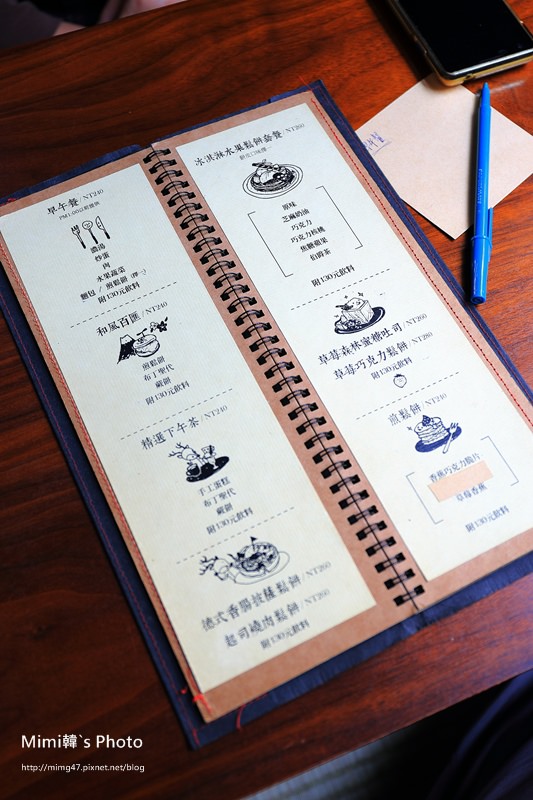 早午餐 / NT240
濃湯
炒蛋
肉
水果蔬菜
麵包 / 煎鬆餅 (擇一)
附130元飲料
和風百匯 / NT240
煎鬆餅
布丁聖代
鹹餅
附130元飲料
精選下午茶 / NT240
手工蛋糕
布丁聖代
鹹餅
附130元飲料
德式香腸披薩鬆餅 / NT260
起司燒肉鬆餅 / NT260
附130元飲料
冰淇淋水果鬆餅套餐 / NT260
原味
芝麻奶油
巧克力
巧克力核桃
焦糖蘋果
伯爵茶
附130元飲料
草莓森林蜜糖吐司 / NT260
草莓巧克力鬆餅 / NT280
附130元飲料
煎鬆餅 / NT240
香蕉巧克力脆片
草莓香蕉
附130元飲料
Mimi韓`s Photo
http://mimg47.pixnet.net/blog